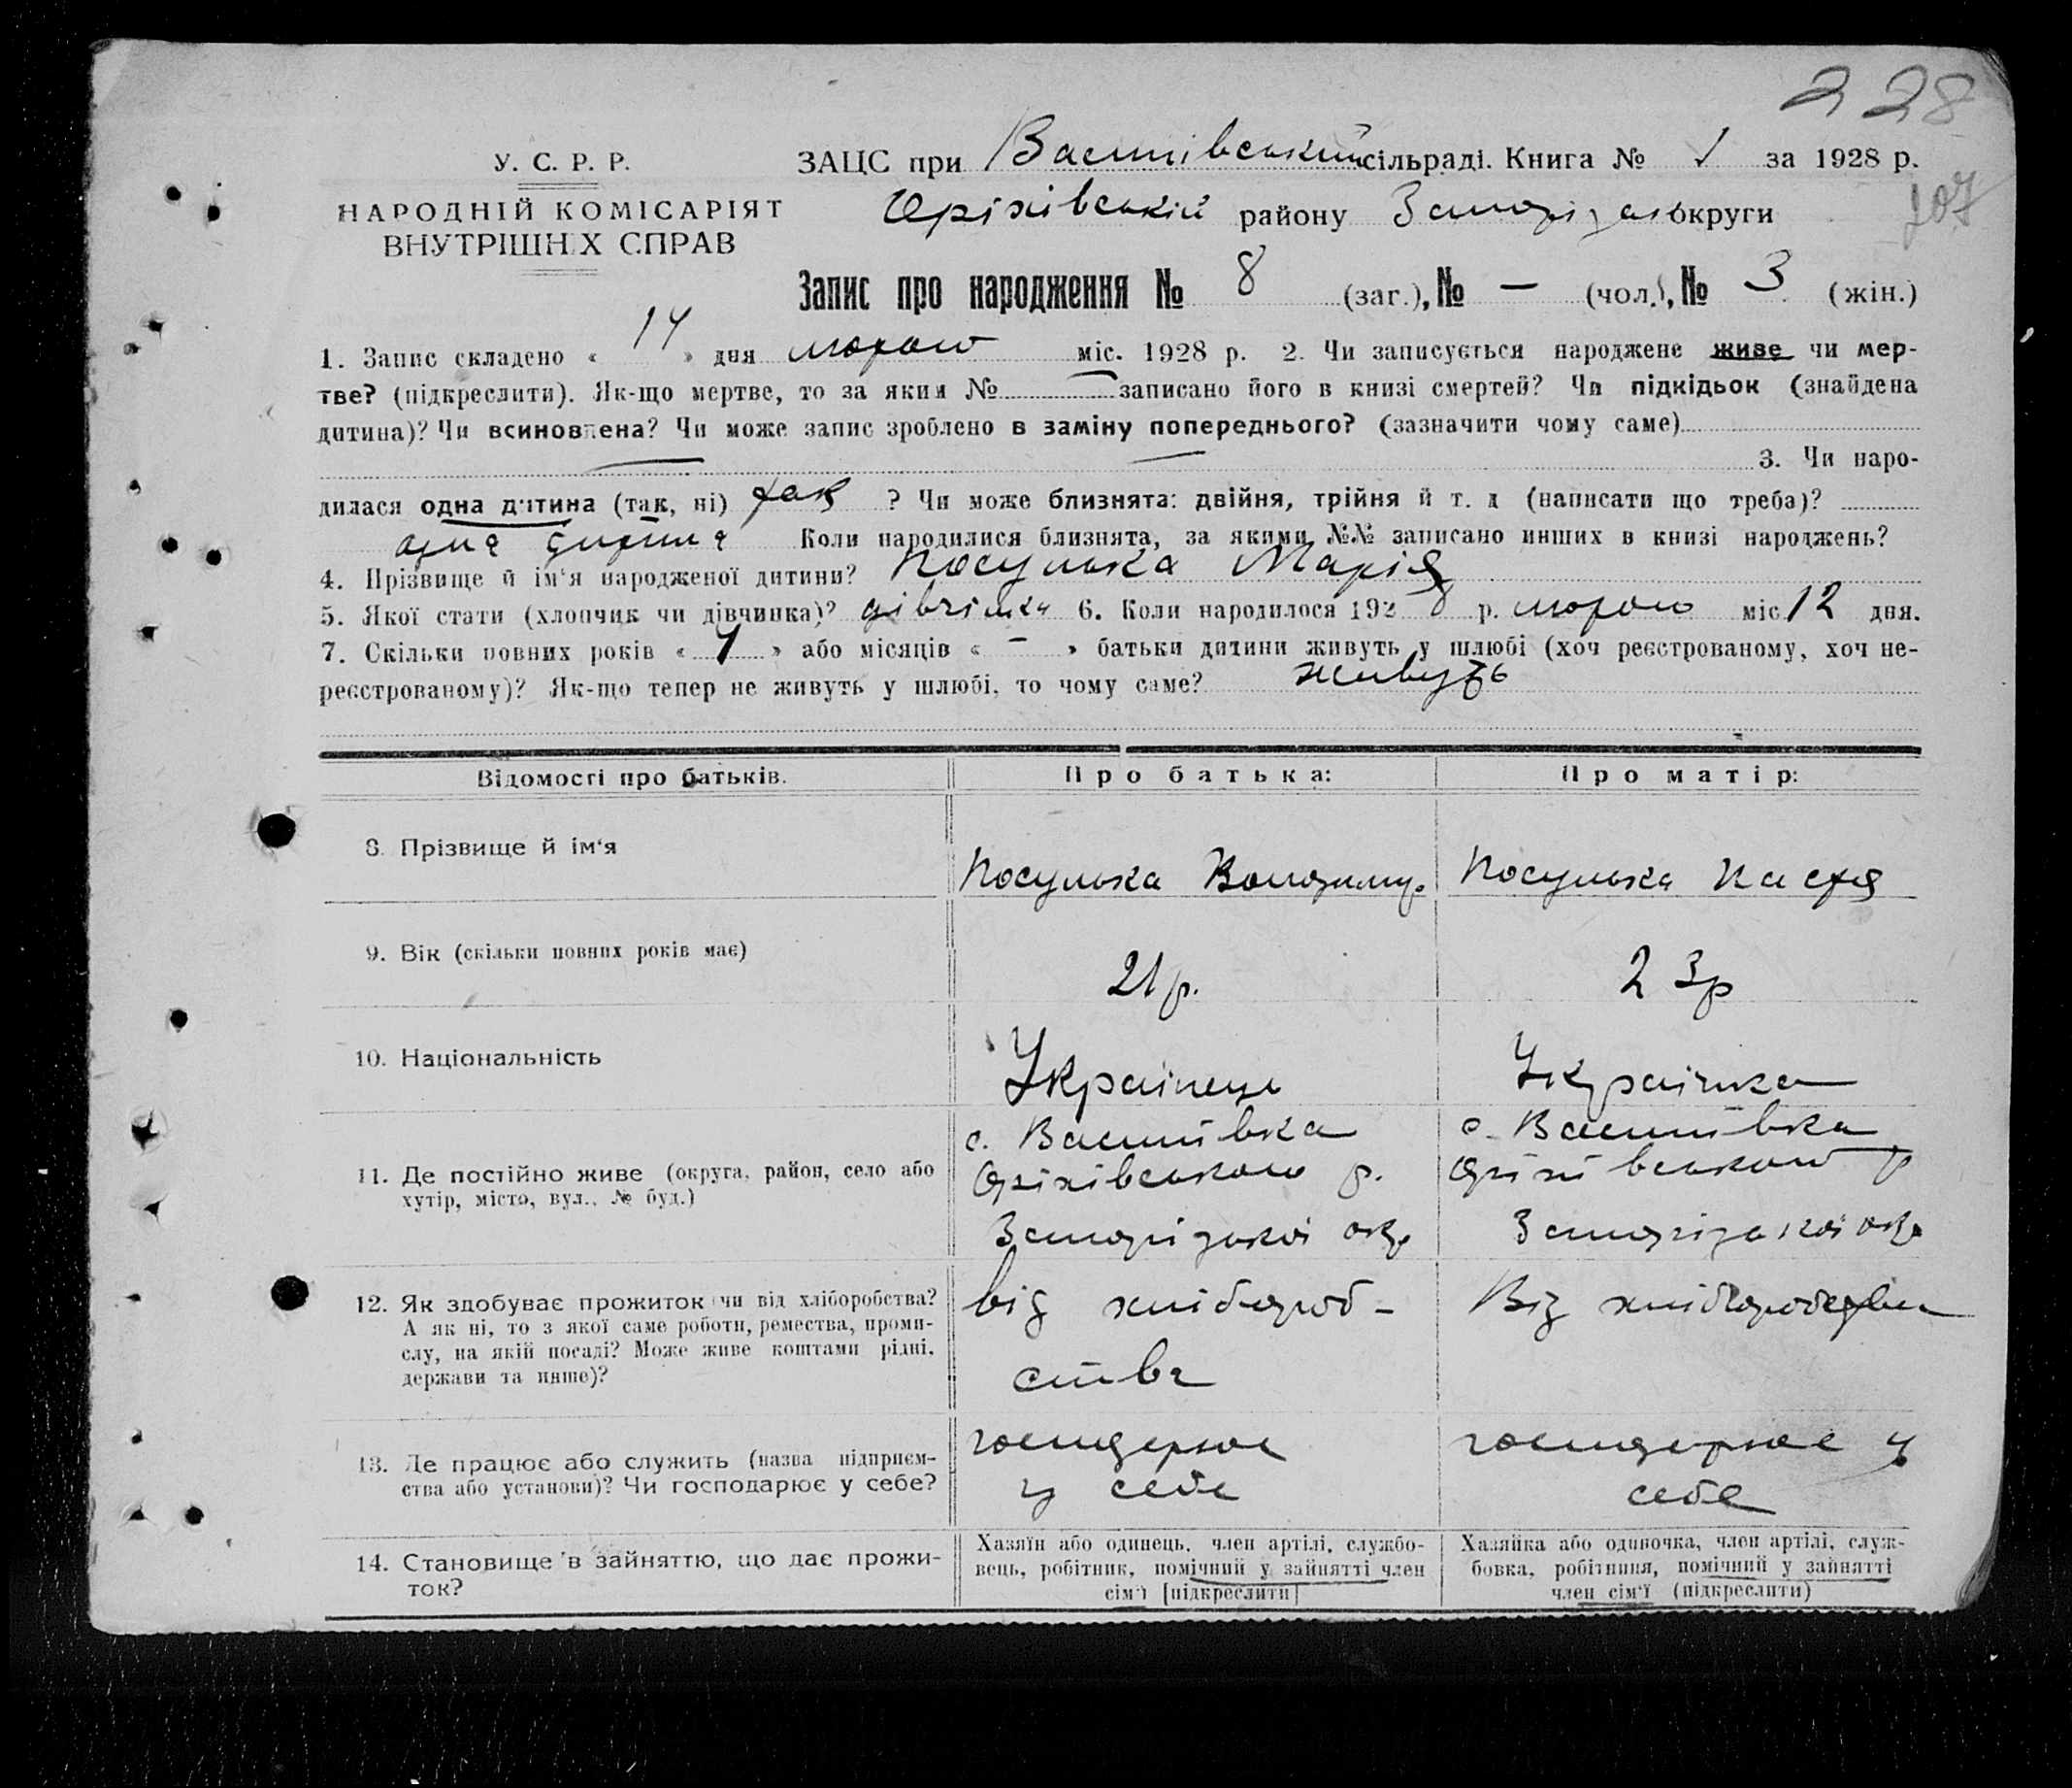 228
У. С. Р. Р.
ЗАЦС при Васинівський сільраді. Книга № 1 за 1928 р.
НАРОДНІЙ КОМІСАРІЯТ
ВНУТРІШНІХ СПРАВ
Оріхівській району округи
207
Запис про народження № 8 (заг.), № — (чол.), № 3 (жін.)
1. Запис складено « 14 » дня лютого міс. 1928 р. 2. Чи записується народжене живе чи мер-
тве? (підкреслити). Як-що мертве, то за яким № — записано його в книзі смертей? Чи підкідьок (знайдена
дитина)? Чи всиновлена? Чи може запис зроблено в заміну попереднього? (зазначити чому саме)
— — 3. Чи наро-
дилася одна дитина (так, ні) так ? Чи може близнята: двійня, трійня й т. д (написати що треба)?
одна дитина Коли народилися близнята, за якими №№ записано инших в книзі народжень?
4. Прізвище й ім'я народженої дитини? Носулька Марія
5. Якої стати (хлопчик чи дівчинка)? дівчинка 6. Коли народилося 1928 р. лютого міс 12 дня.
7. Скільки повних років « » або місяців « — » батьки дитини живуть у шлюбі (хоч реєстрованому, хоч не-
реєстрованому)? Як-що тепер не живуть у шлюбі, то чому саме? живуть
Відомості про батьків.
Про батька:
Про матір:
8. Прізвище й ім'я
Носулька Володимир
Носулька Настя
9. Вік (скільки повних років має)
21 р.
23 р
10. Національність
Українець
Українка
11. Де постійно живе (округа, район, село або
хутір, місто, вул., № буд.)
с. Васинівка
Оріхівського р.
Запорізької окр
с. Васинівка
Оріхівського р
Запорізької окр
12. Як здобуває прожиток чи від хліборобства?
А як ні, то з якої саме роботи, ремества, проми-
слу, на якій посаді? Може живе коштами рідні,
держави та инше)?
від хлібороб-
ства
Від хліборобства
13. Де працює або служить (назва підприєм-
ства або установи)? Чи господарює у себе?
господарює
у себе
господарює у
себе
14. Становище в зайняттю, що дає прожи-
ток?
Хазяїн або одинець, член артілі, службо-
вець, робітник, помічний у зайнятті член
сім'ї [підкреслити]
Хазяйка або одиночка, член артілі, служ-
бовка, робітниця, помічний у зайнятті
член сім'ї (підкреслити)